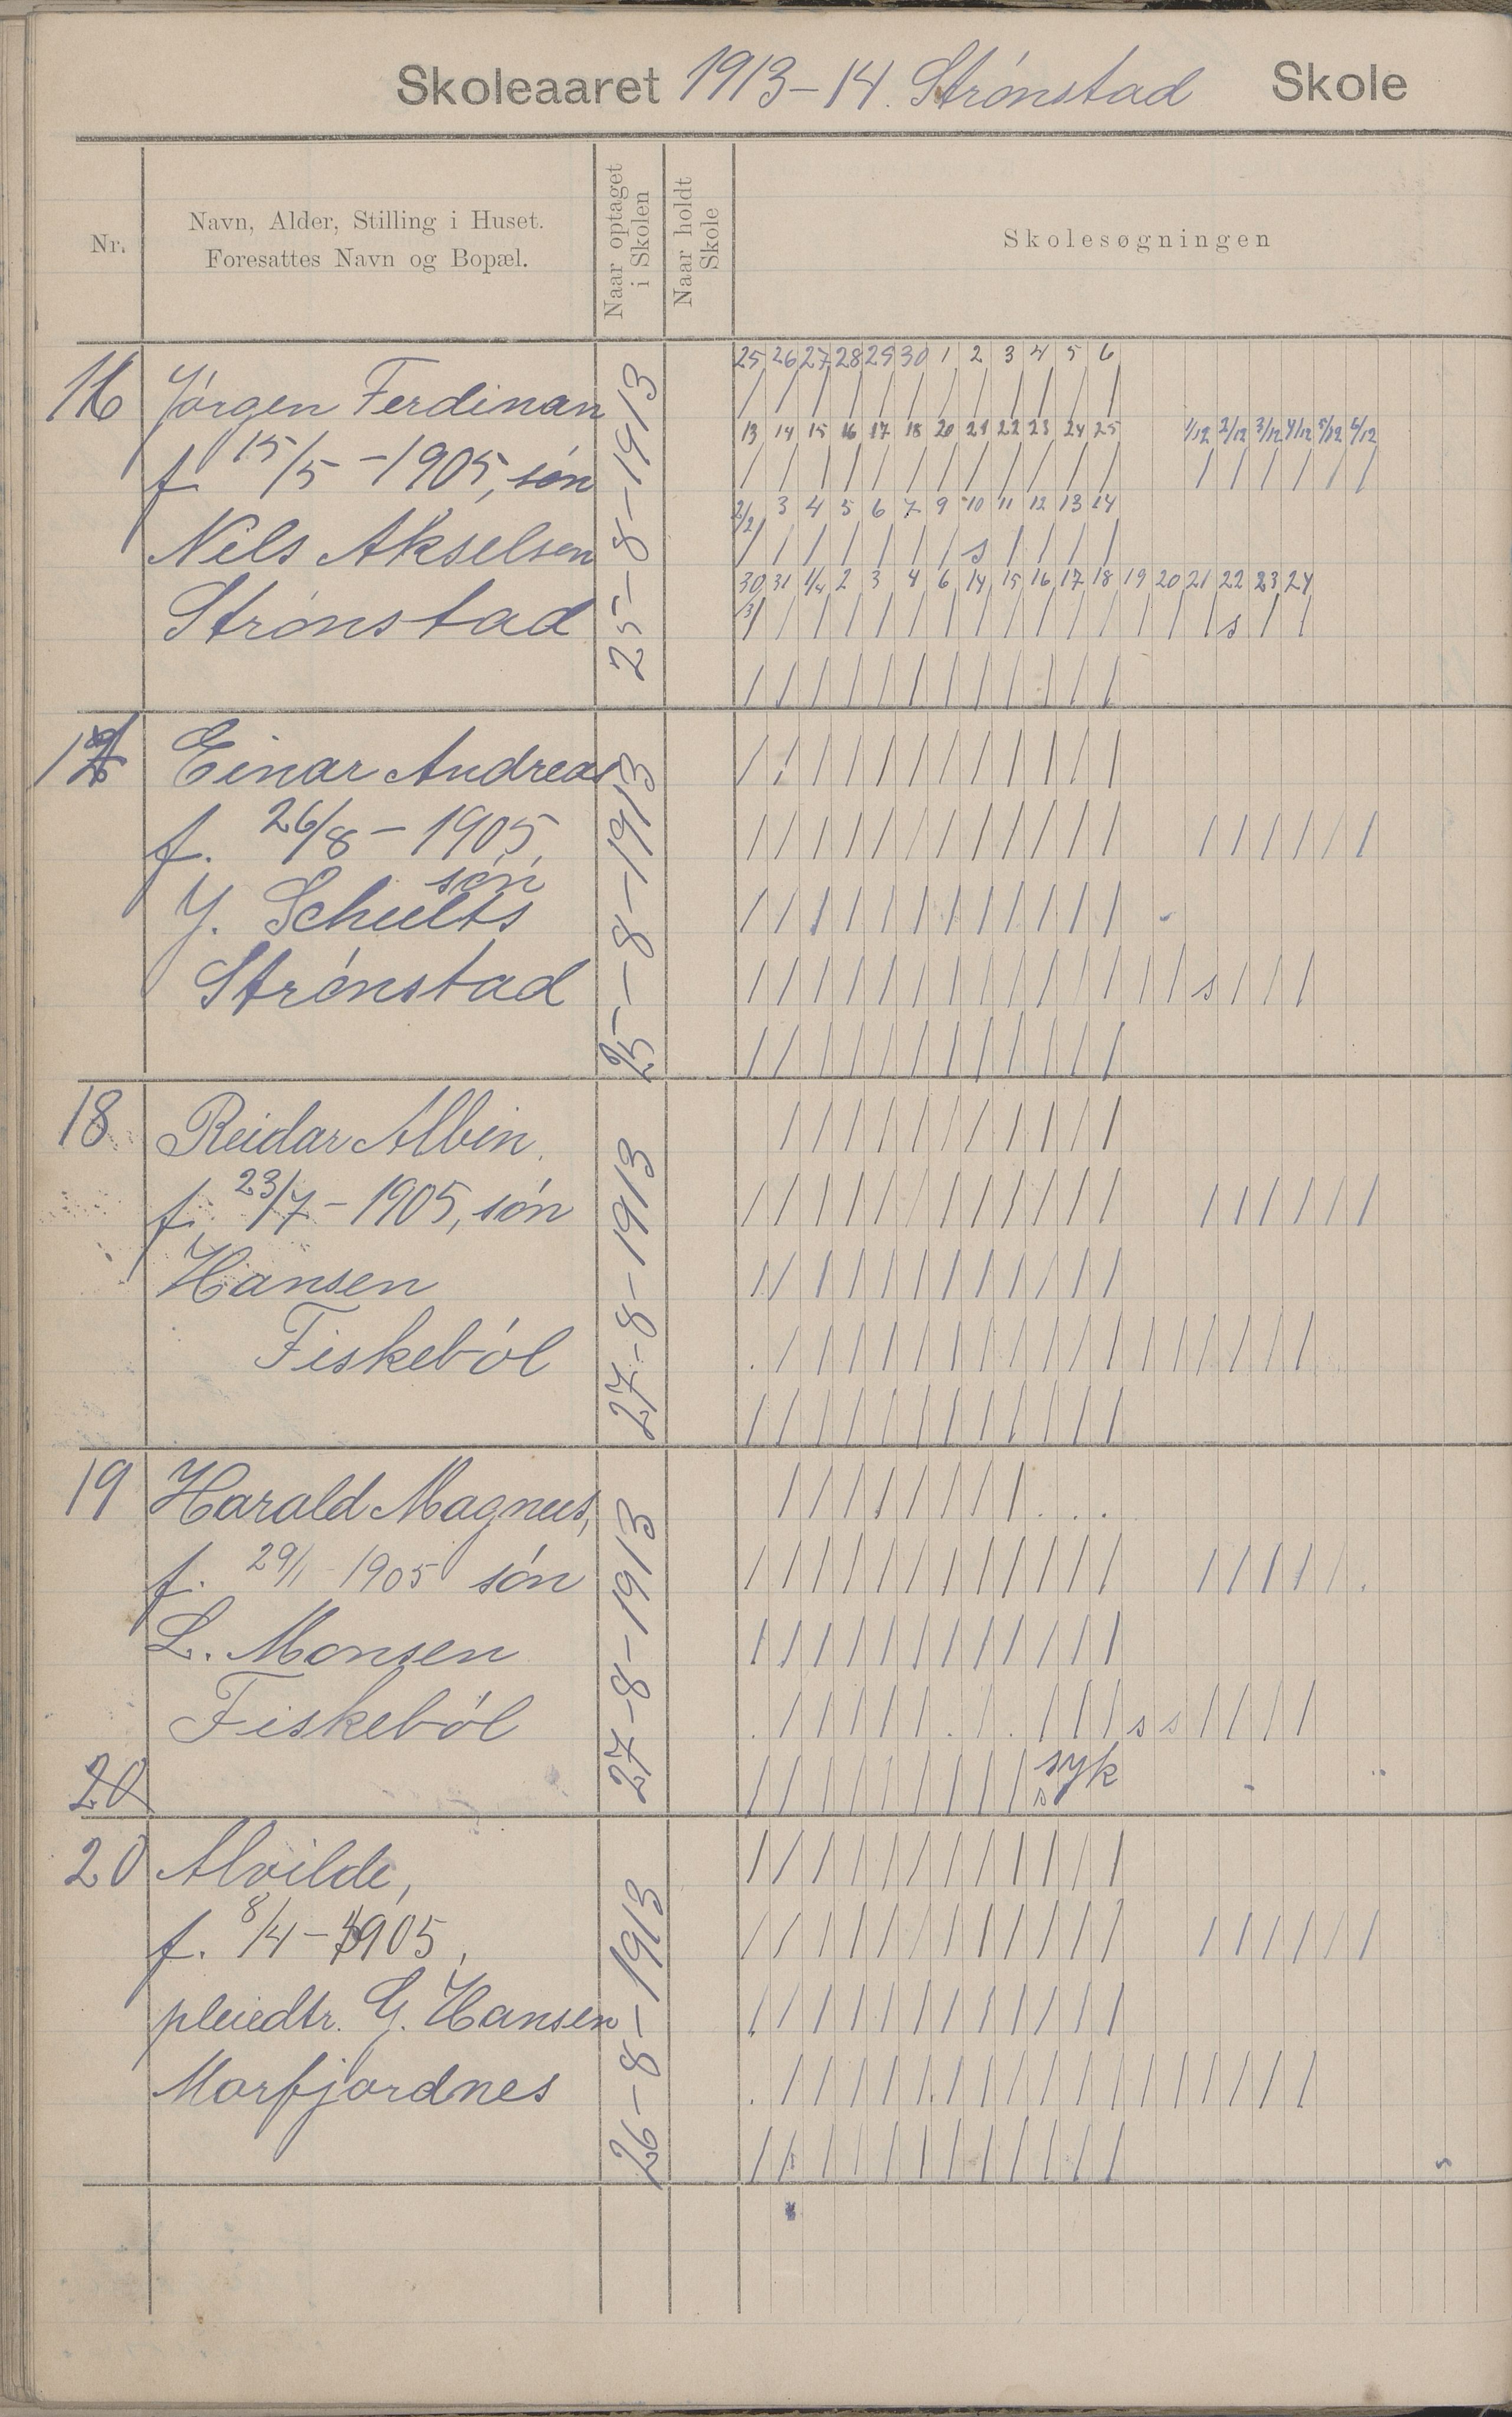 Skoleaaret 1913-14. Strønstad Skole
Nr.
Navn, Alder, Stilling i Huset.
Foresattes Navn og Bopæl.
Naar optaget
i Skolen
Naar holdt
Skole
Skolesøgningen
25 26 27 28 29 30 1 2 3 4 5 6
16 Jørgen Ferdinan
13 14 15 16 17 18 20 21 22 23 24 25 1/12 2/12 3/12 4/12 5/12 6/12
f. 15/5-1905, søn
2/2 3 4 5 6 7 9 10 11 12 13 14
Nels Akselsen
s
30/3 31 1/4 2 3 4 6 14 15 16 17 18 19 20 21 22 23 24
Strønstad
s
25-8-1913
17 Einar Andreas
f. 26/8-1905,
søn
J. Schults
Strønstad
s
25-8-1913
18 Reidar Albin.
f. 23/7-1905, søn
Hansen
Fiskebøl
27-8-1913
19 Harald Magnus,
f. 29/1-1905 søn
L. Monsen
Fiskebøl
s s
27-8-1913
20
s syk
20 Alvilde,
f. 8/4-1905,
pleiedtr. G. Hansen
Morfjordnes
26-8-1913